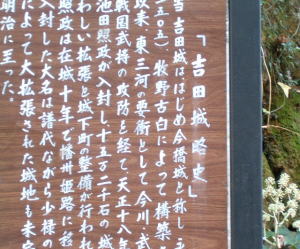 「吉田城略史」
当吉田城ははじめ今橋城と称し
一五〇五)牧野古白によって構築
以来、東三河の要衝として今川、武
戦国武将の攻防を経て、天正十八
池田照政が入封し十五万二千石の城
わしい拡張と城下町の整備が行われ
照政は在城十年で播州姫路に移
入封した大名は譜代ながら少禄の
によって大拡張された城地も未完
明治に至った。